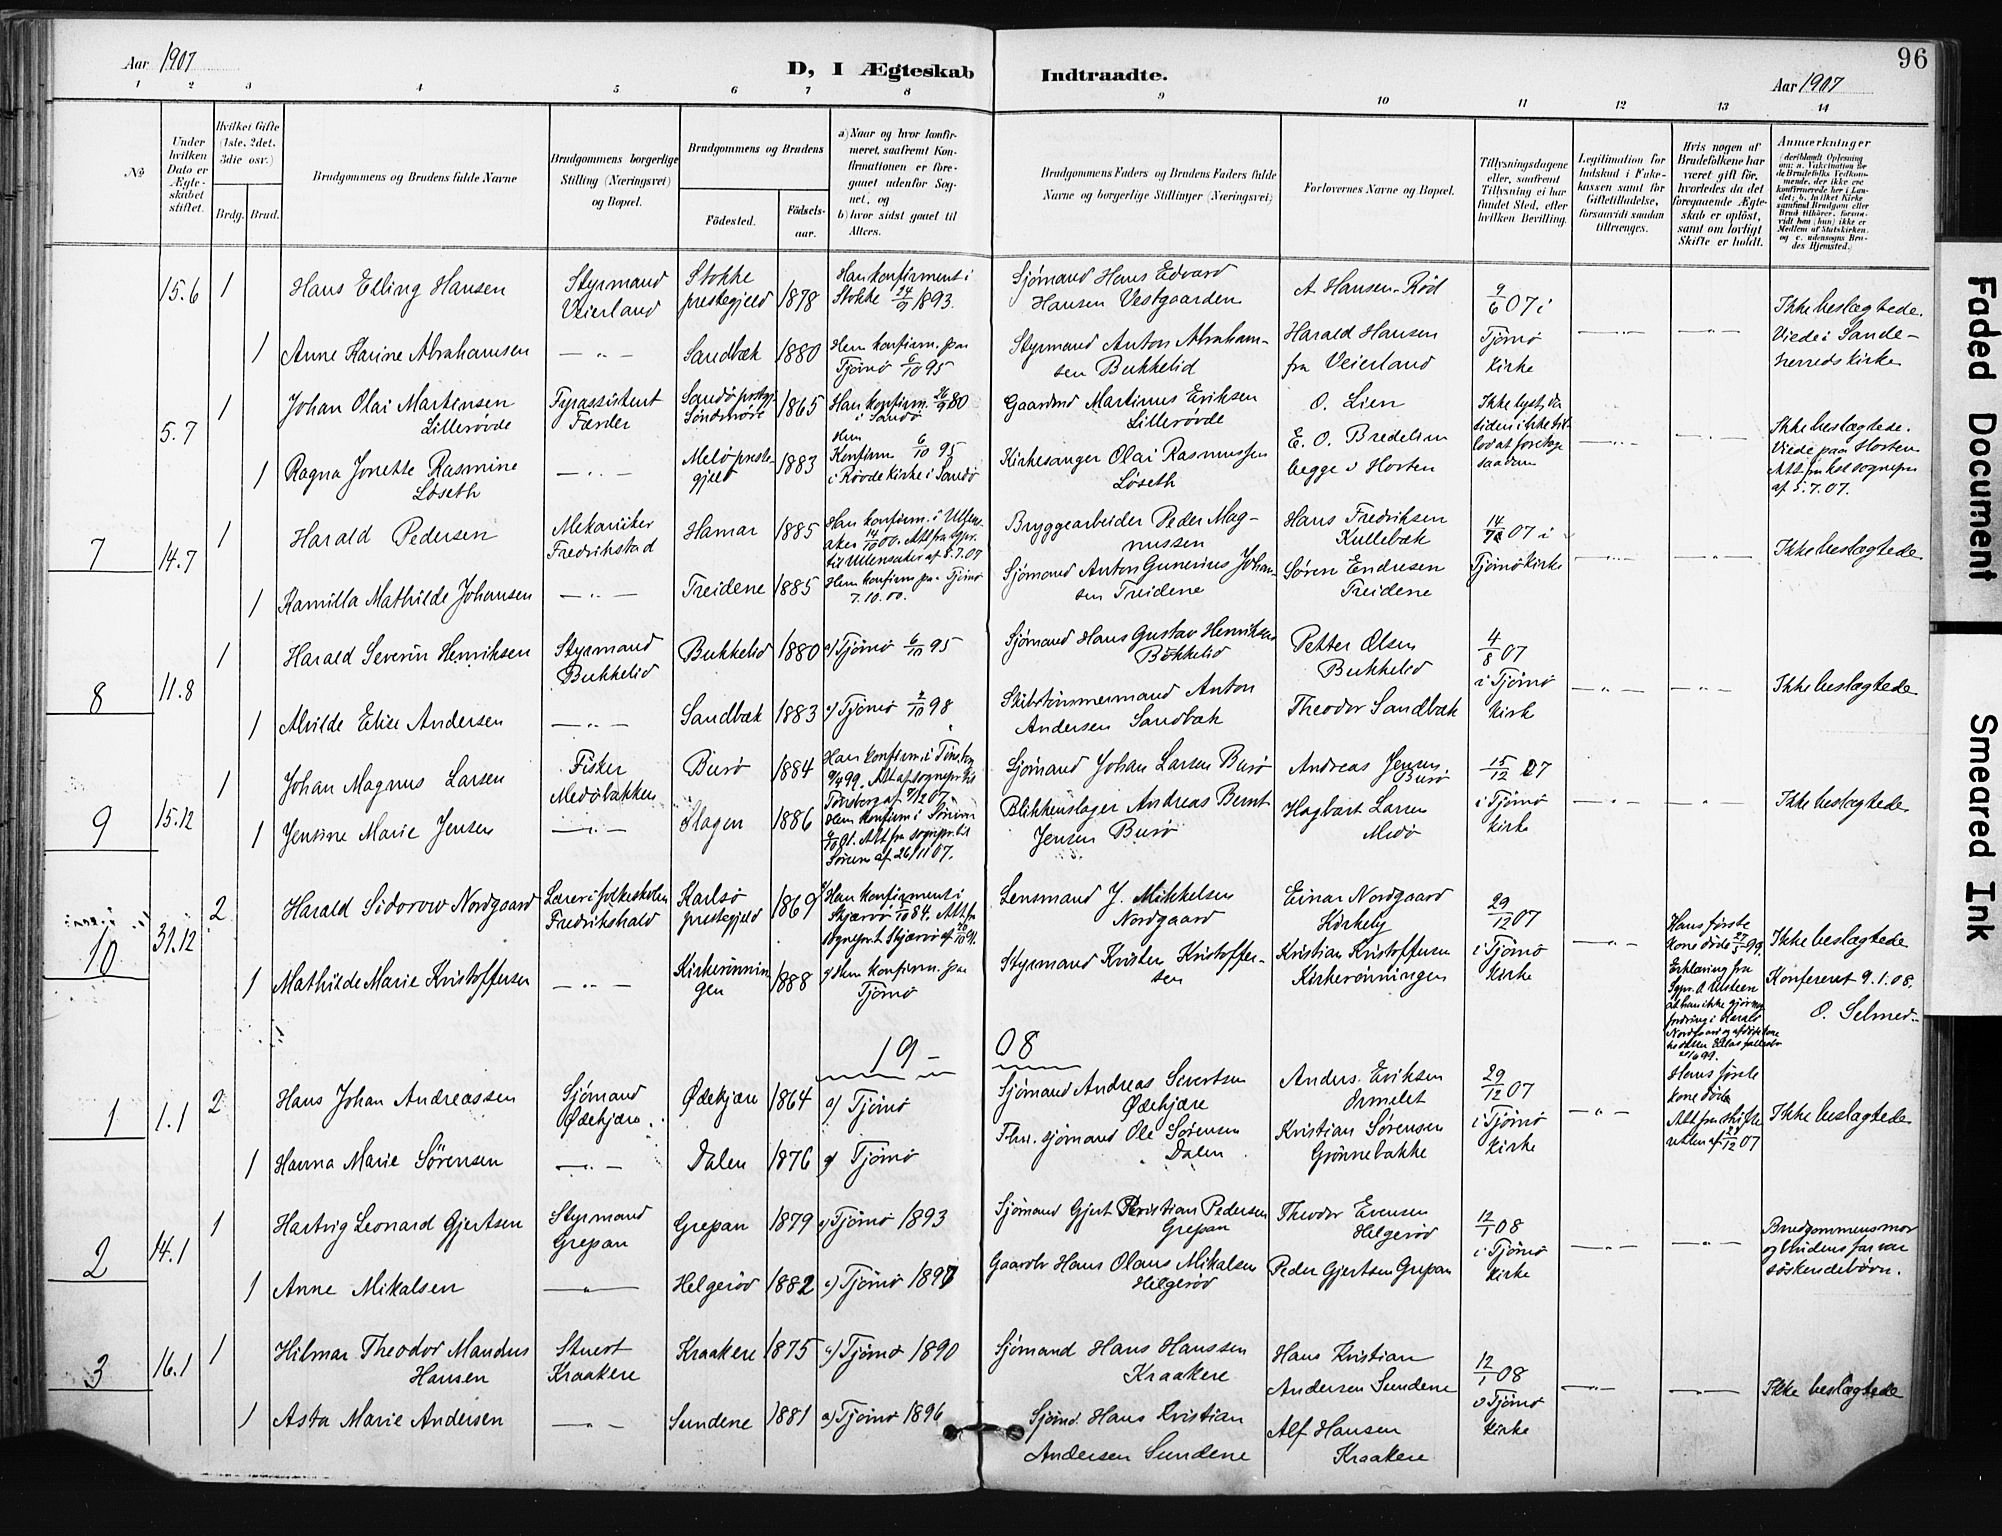 96
Aar 1907
D, I Ægteskab Indtraadte.
Aar 1907
1 2 3 4 5 6 7 8 9 10 11 12 13 14
No
Under hvilken Dato er Ægteskabet stiftet.
Hvilket Gifte (1ste, 2det, 3die osv.)
Brdg. Brud.
Brudgommens og Brudens fulde Navne
Brudgommens borgerlige Stilling (Næringsvei) og Bopæl.
Brudgommens og Brudens
Födested.
Födsels-aar.
a) Naar og hvor konfirmeret, saafremt Konfirmationen er foregaaet udenfor Sognet, og
b) hvor sidst gaaet til Alters.
Brudgommens Faders og Brudens Faders fulde Navne og borgerlige Stillinger (Næringsvei)
Forlovernes Navne og Bopæl.
Tillysningsdagene eller, saafremt Tillysning ei har fundet Sted, efter hvilken Bevilling.
Legitimation for Indskud i Enkekassen samt for Giftetilladelse, forsaavidt saadan tiltrænges.
Hvis nogen af Brudefolkene har været gift för, hvorledes da det foregaaende Ægteskab er oplöst, samt om lovligt Skifte er holdt.
Anmærkninger
15.6 1 Hans Elling Hansen Styrmand Veierland Stokke prestegjeld 1878 Han konfirment i Stokke 24/9 1893. Sjømand Hans Edvard Hansen Vestgaarden A. Hansen-Rød 9/6 07 i
1 Anne Karine Abrahamsen — " — Sandbæk 1880 Hun konfirm. paa Tjømø 6/10 95 Styrmand Anton Abrahamsen Bukkelid Harald Hansen fra Veierland Tjømø Kirke — " — — " — Ikke beslægtede. Viede i Sandeherreds kirke
5.7 1 Johan Olai Martinsen Lillerøvde Fyrassistent Færder Sandø prstgj. Søndmøre 1865 Han konfirm. 80 i Sandø Gaardmd Martinus Eriksen Lillerøvde O. Lien Ikke lyst, da
1 Ragna Jonette Rasmine Løseth — " — Melø prestegjeld 1883 Hun Konfirm 6/10 95 i Røvde Kirke i Sandø Kirkesanger Olai Rasmussen Løseth E. O. Bredelien begge v Horten saadan — " — — " — Ikke beslægtede. Viede paa Horten. af 5.7.07.
7 14.7 1 Harald Pedersen Mekaniker Fredrikstad Hamar 1885 Han konfirm. i Ullensaker 14/10 00. Att fra sgpr. til Ullensaker af 5.7.07 Bryggearbeider Peder Magnussen Hans Fredriksen Kullebæk 14/7 07 i
1 Kamilla Mathilde Johansen — " — Treidene 1885 Hun konfirm paa Tjømø 7.10.00. Sjømand Anton Gunerius Johansen Treidene Søren Endresen Treidene Tjømø kirke — " — — " — Ikke beslægtede
8 11.8 1 Harald Severin Henriksen Styrmand Bukkelid Bukkelid 1880 a) Tjømø 6/10 95 Sjømand Hans Gustav Henriksen Bukkelid Petter Olsen Bukkelid 4/8 07
1 Alvilde Elise Andersen — " — Sandbæk 1883 a) Tjømø 2/10 98 Skibstømmermand Anton Andersen Sandbæk Theodor Sandbæk i Tjømø kirk — " — — " — Ikke beslægtede
9 15.12 1 Johan Magnus Larsen Fisker Medøbakken Burø 1884 Han konfirm. i Tønsberg 99. Att af sognepr. til Tønsberg af 07. Sjømand Johan Larsen Burø Andreas Jensen Burø 15/12 07
1 Jensine Marie Jensen — " — Slagen 1886 Hun konfirm i Sørum 01. Att fra sognepr. til Sørum af 26/11 07. Blikkenslager Andreas Bernt Jensen Burø Hagbart Larsen Medø i Tjømø kirke — " — — " — Ikke beslægtede
10 31.12 2 Harald Sidorow Nordgaard Lærer i folkeskolen Fredrikshald Karlsø prestegjeld 1869 Han konfirment i Skjærvø 84. Att fra sognepr. t. Skjærvø af Lensmand J. Mikkelsen Nordgaard Einar Nordgaard Kirkely 29/12 07
1 Mathilde Marie Kristoffersen — " — Kirkerønningen 1888 a) Hun konfirm. paa Tjømø Styrmand Kristen Kristoffersen Kristian Kristoffersen Kirkerønningen i Tjømø kirke — " — Hans første kone døde 27/5 99. Erklæring fra Ikke beslægtede Konfereret 9.1.08. O. Selmer
19 — 08
1 1.1 2 Hans Johan Andreassen Sjømand Ødekjære Ødekjære 1864 a) Tjømø Sjømand Andreas Sivertsen Ødekjære Anders. Eriksen Ormelet 29/12 07
1 Hanna Marie Sørensen — " — Dalen 1876 a) Tjømø Fhv. sjømand Ole Sørensen Dalen Kristian Sørensen Grønnebakke i Tjømø kirke — " — Hans første kone døde Att fra skifteretten af 07 Ikke beslægtede
2 14.1 1 Hartvig Leonard Gjertsen Styrmand Grepan Grepan 1879 a) Tjømø 1893 Sjømand Gjert Kristian Pedersen Grepan Theodor Evensen Helgerød 12/1 08
1 Anne Mikalsen — " — Helgerød 1882 a) Tjømø 1897 Gaardbr Hans Olaus Mikalsen Helgerød Peder Gjertsen Grepan i Tjømø kirke — " — — " — Brudgommens mor og brudens far var søskendebørn.
3 16.1 1 Hilmar Theodor Mandus Hansen Stuert Kraakere Kraakere 1875 a) Tjømø 1890 Sjømand Hans Hanssen Kraakere Hans Kristian Andersen Sundene 12/1 08
1 Asta Marie Andersen — " — Sundene 1881 a) Tjømø 1896 Sjømd. Hans Kristian Andersen Sundene Alf Hansen Kraakere i Tjømø kirke — " — — " — Ikke beslægtede
Faded Document
Smeared Ink